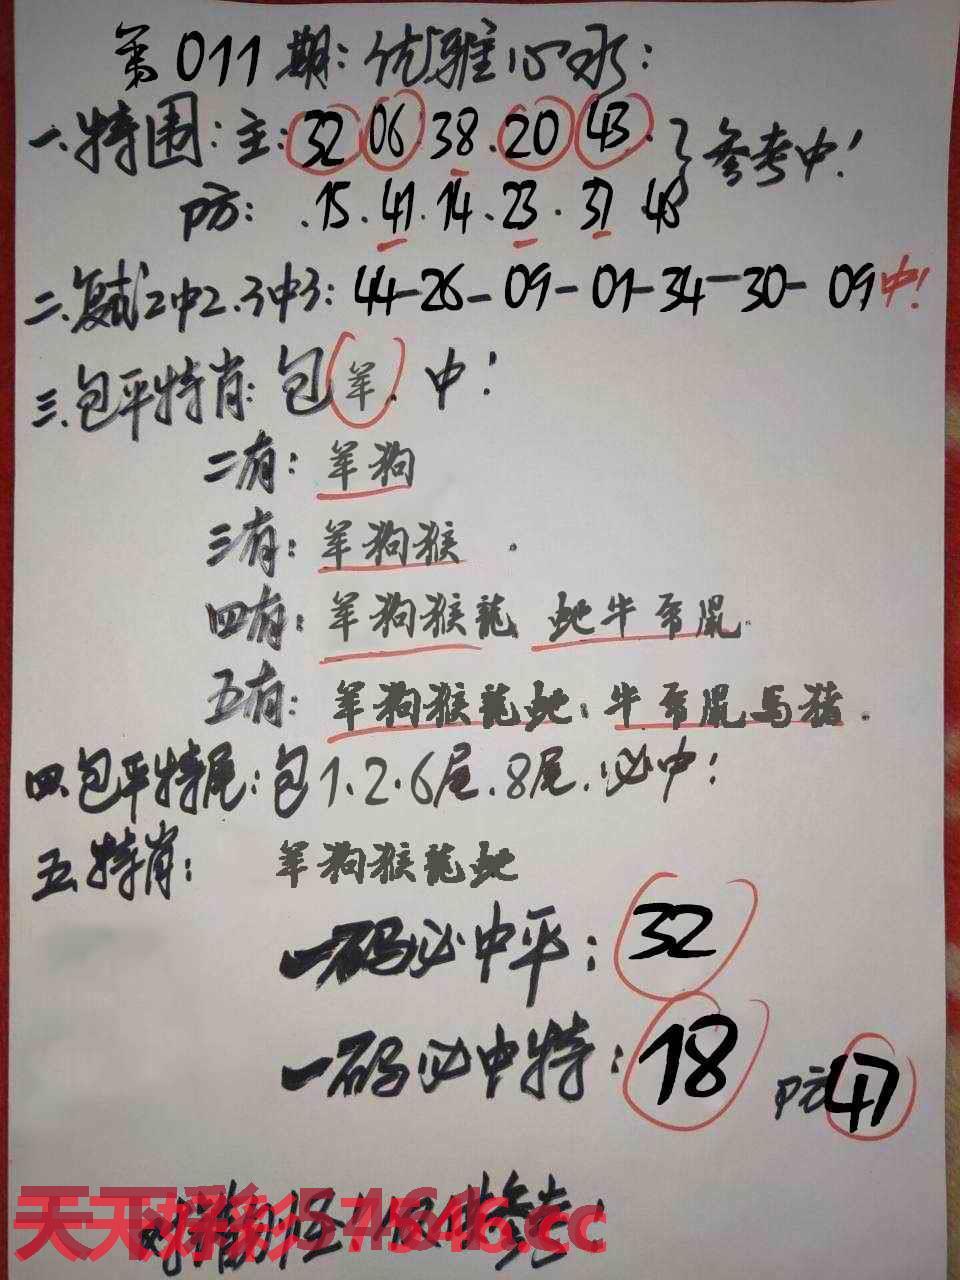 第011期:优雅心水:
一.特围:主:32 06.38.20 43. 参考中!
防: .15.41.14.23.37 48
二.复式2中2.3中3:44-26-09-01-34-30-09中!
三.包平特肖:包羊.中!
二有:羊狗
三有:羊狗猴.
四有:羊狗猴龍 蛇牛兎鼠.
五有:羊狗猴龍蛇.牛兎鼠馬猪.
四.包平特尾:包1.2.6尾.8尾.必中!
五.特肖: 羊狗猴龍蛇
一码必中平:32
一码必中特:18 防47
天下彩 57546.cc